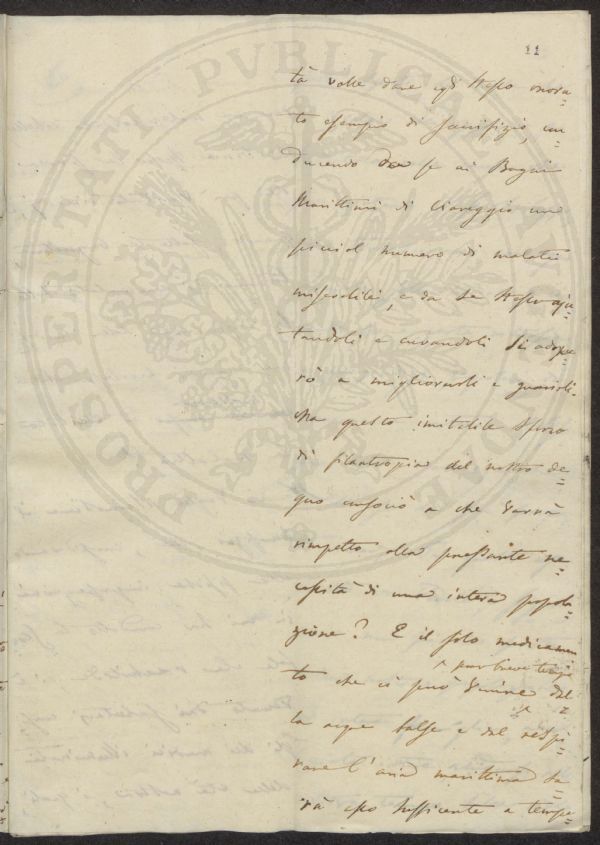 11
tà volle dare egli stesso onora=
to esempio di sacrifizio, con=
ducendo da se ai Bagni
Marittimi di Viareggio un
picciol numero di malati
miserabili, e da se stesso aju=
tandoli e curandoli si adope=
rò a migliorarli e guarirli.
Ma questo imitabile sforzo
di filantropia del nostro de=
gno a che varrà
rimpetto alla pressante ne=
cessità di una intera popola
zione? E il solo medicamen
to che ci può venire dal=
^ pur breve tempo
la acque salse e dal respi=
rare l'aria marittima sa=
rà esso sufficente a tempe=
PROSPERITATI PVBLICAE